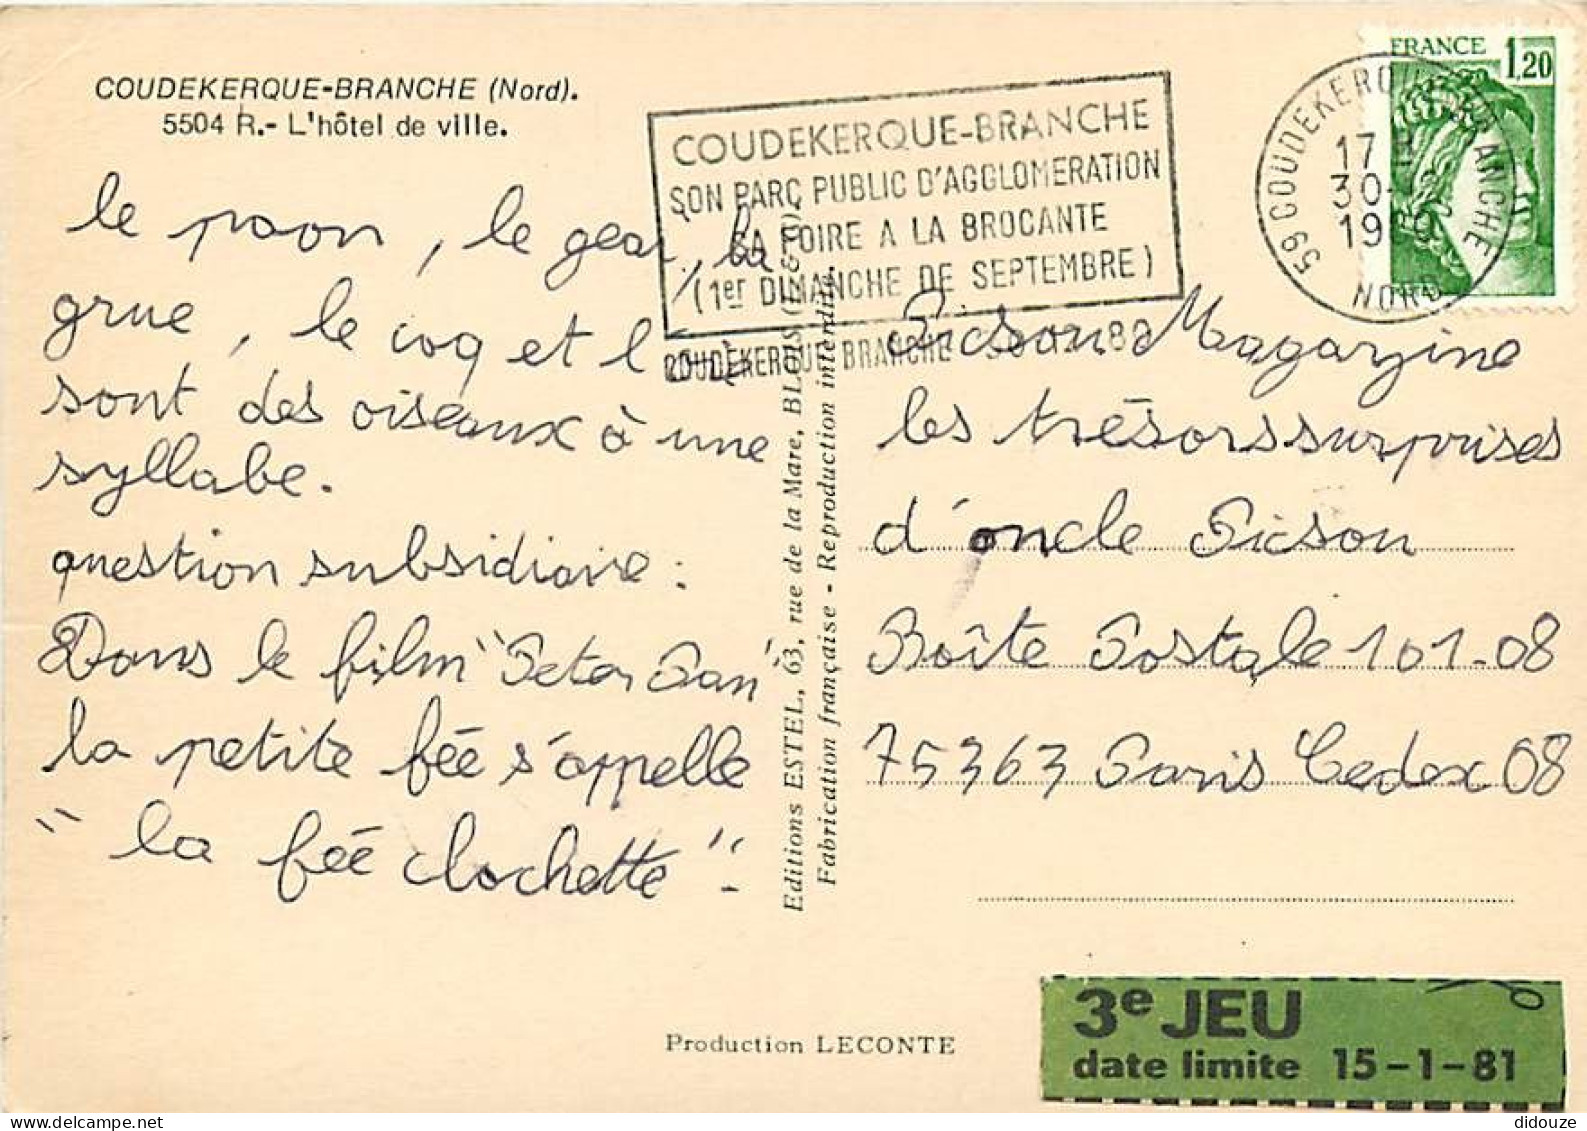 COUDEKERQUE-BRANCHE (Nord).
5504 R.- L'hôtel de ville.
le paon, le geai, la
grue, le coq et l'
sont des oiseaux à une
syllabe.
question subsidiaire :
Dans le film "Peter Pan"
la petite fée s'appelle
"la fée clochette".
Editions ESTEL, 63, rue de la Mare, BLOIS
Fabrication française - Reproduction interdite.
Production LECONTE
COUDEKERQUE-BRANCHE
SON PARC PUBLIC D'AGGLOMERATION
SA FOIRE A LA BROCANTE
(1er DIMANCHE DE SEPTEMBRE)
COUDEKERQUE BRANCHE
59 COUDEKERQUE BRANCHE
17 H
30-12
1980
NORD
FRANCE 1,20
Picsou Magazine
les trésors surprises
d'oncle Picsou
Boîte Postale 101-08
75363 Paris Cedex 08
3e JEU
date limite 15-1-81
didouze